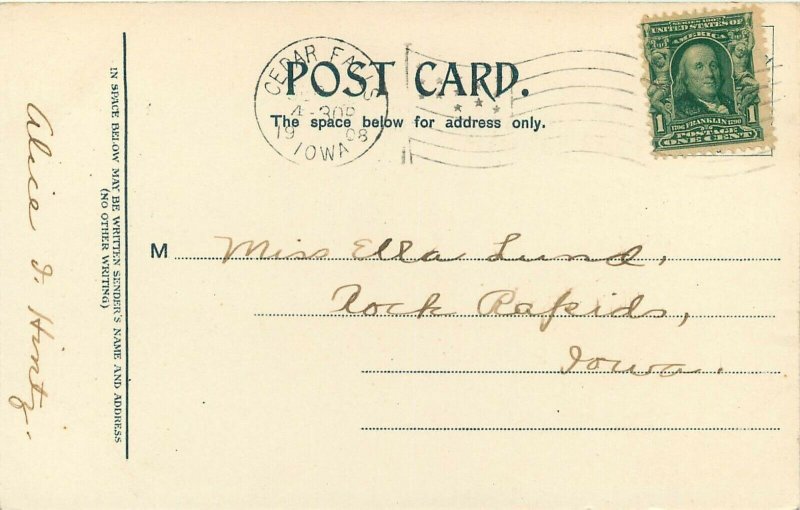 POST CARD.
The space below for address only.
CEDAR FALLS
4-30P
19 08
IOWA
SERIES 1902
UNITED STATES OF
AMERICA
1 1706 FRANKLIN 1790 1
POSTAGE
ONE CENT
IN SPACE BELOW MAY BE WRITTEN SENDER'S NAME AND ADDRESS
(NO OTHER WRITING)
Alice I. Hintz.
M Miss Ella Lund,
Rock Rapids,
Iowa.